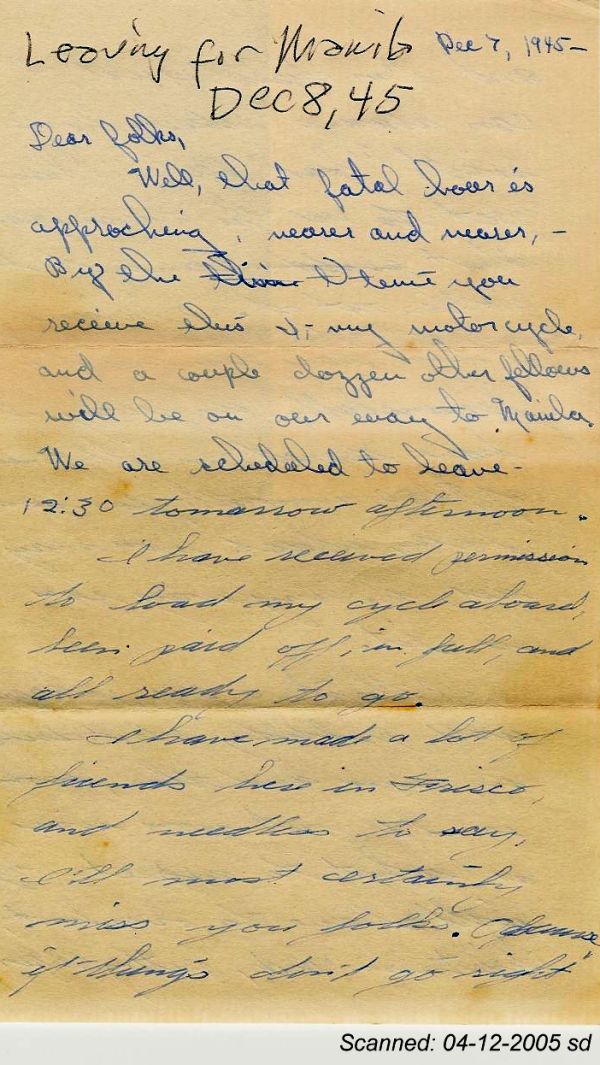 Leaving for Manila
Dec 7, 1945 —
Dec 8, 45
Dear folks,
Well, that fatal hour is
approching, nearer and nearer, –
By the time you
receive this I, my motorcycle,
and a couple dozzen other fellows
will be on our way to Manila.
We are scheduled to leave –
12:30 tomarrow afternoon.
I have received permission
to load my cycle aboard,
been paid off, in full, and
all ready to go.
I have made a lot of
friends here in Frisco,
and needless to say,
I'll most certainly
miss you folks.
if things don't go right
Scanned: 04-12-2005 sd